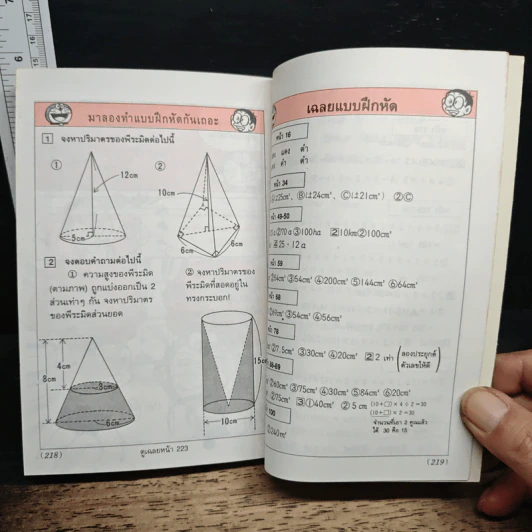 มาลองทำแบบฝึกหัดกันเถอะ
1 จงหาปริมาตรของพีระมิดต่อไปนี้
① ②
12cm
5cm
10cm
6cm 6cm
2 จงตอบคำถามต่อไปนี้
① ความสูงของพีระมิด
(ตามภาพ) ถูกแบ่งออกเป็น 2
ส่วนเท่าๆ กัน จงหาปริมาตร
ของพีระมิดส่วนยอด
② จงหาปริมาตรของ
พีระมิดที่สอดอยู่ใน
ทรงกระบอก!
4cm
8cm
3cm
6cm
15c
10cm
(218)
ดูเฉลยหน้า 223
เฉลยแบบฝึกหัด
หน้า 16
แดง ดำ
ดำ ดำ
หน้า 34
25cm², Ⓑ(±24cm², Ⓒ(±21cm²) ②Ⓒ
49-50
②70a ③100ha 2 10km②100cm²
25・12a
หน้า 59
64cm² ③54cm² ④200cm² ⑤144cm² ⑥64cm²
68
69cm² ③54cm² ④56cm²
78
②7.5cm² ③30cm² ④20cm² 2 2 เท่า (ลองประยุกต์
ตัวเลขให้ดี)
88-89
②60cm² ③75cm² ④30cm² ⑤84cm² ⑥20cm²
②75cm² 3①40cm² ② 5 cm (10+□)×4÷2=30
(10+□)×2=30
จำนวนที่เอา 2 คูณแล้ว
ได้ 30 คือ 15
100
240m²
(219)